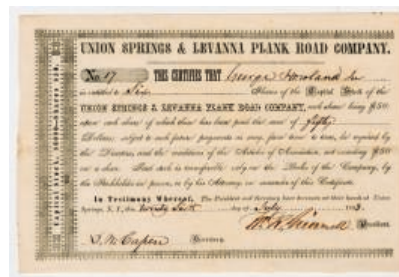 UNION SPRINGS & LEVANNA PLANK ROAD COMPANY.
No. 17 THIS CERTIFIES THAT George Howland Jr
is entitled to Shares of the Capital Stock of the
UNION SPRINGS & LEVANNA PLANK ROAD COMPANY, each share being $50
upon each share of which there has been paid the sum of fifty
Dollars, subject to such future payments as may, from time to time, be required by
the Directors, and the conditions of the Articles of Association, not exceeding $50
on a share. Said stock is transferable only on the Books of the Company, by
the Stockholder in person, or by his Attorney, on surrender of this Certificate.
In Testimony Whereof, The President and Secretary have hereunto set their hands at Union
Springs, N. Y., this twenty sixth day of July
President.
Secretary.